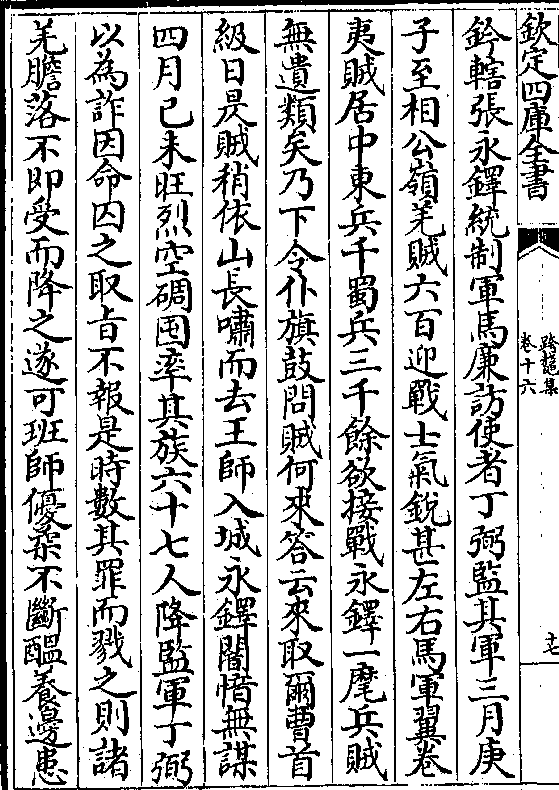 欽定四庫全書
跨鼇集
卷十六
十七
鈐轄張永鐸統制軍馬廉訪使者丁弼監其軍三月庚
子至相公嶺羌賊六百迎戰士氣銳甚左右馬軍翼卷
夷賊居中東兵千蜀兵三千餘欲接戰永鐸一麾兵賊
無遺類矣乃下令仆旗鼓問賊何來答云來取爾曹首
級日是賊稍依山長嘯而去王師入城永鐸闇惛無謀
四月己未旺烈空碉囤率其族六十七人降監軍丁弼
以為詐因命囚之取旨不報是時數其罪而戮之則諸
羌膽落不即受而降之遂可班師優柔不斷醖養邊患